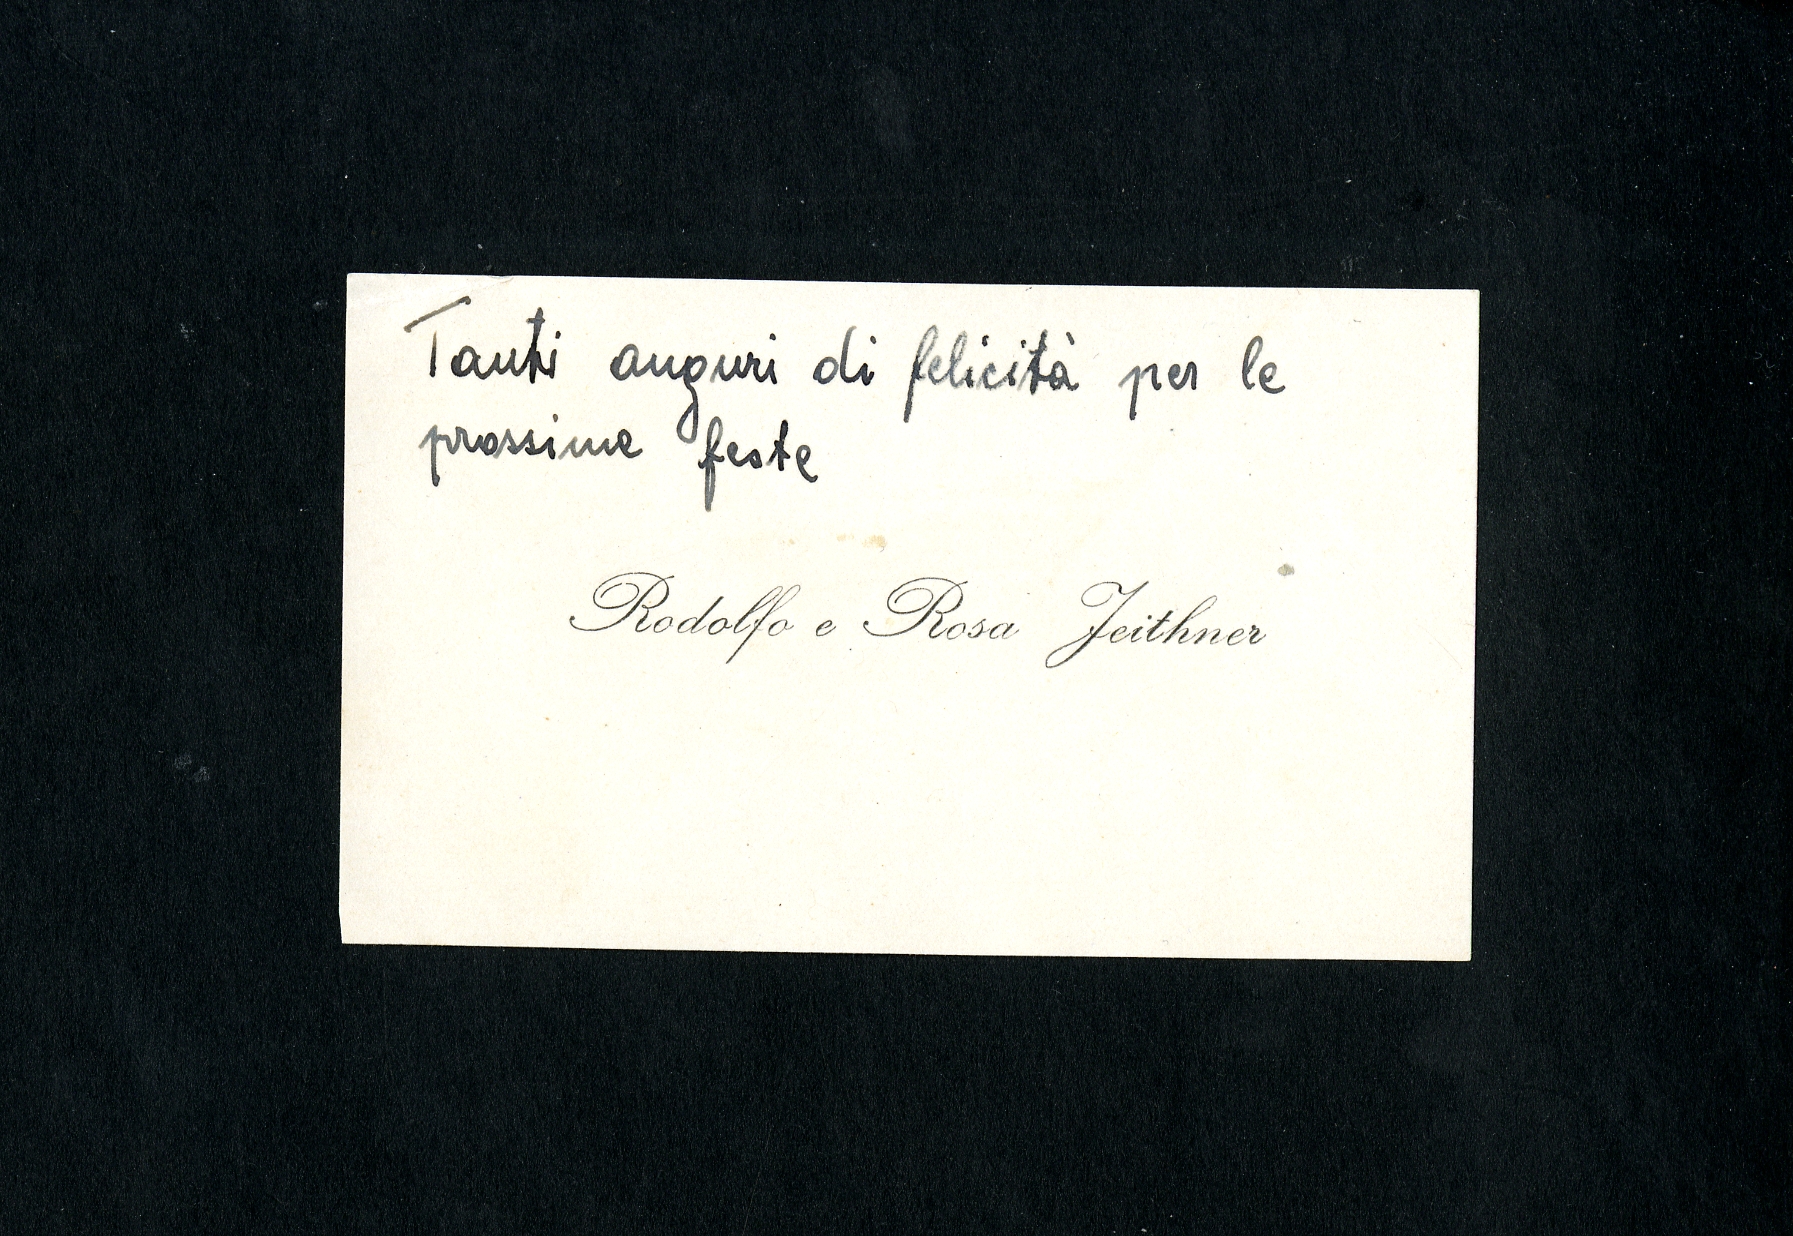 Tanti auguri di felicità per le
prossime feste
Rodolfo e Rosa Jeithner